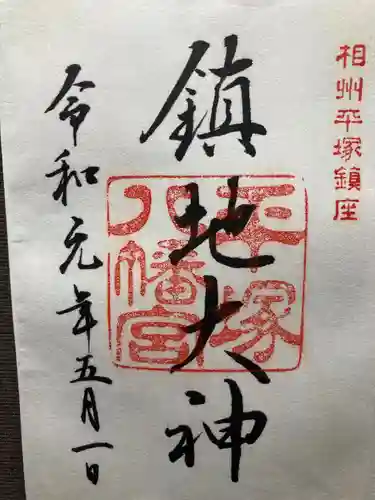 相州平塚鎮座
鎮地大神
平塚八幡宮
令和元年五月一日